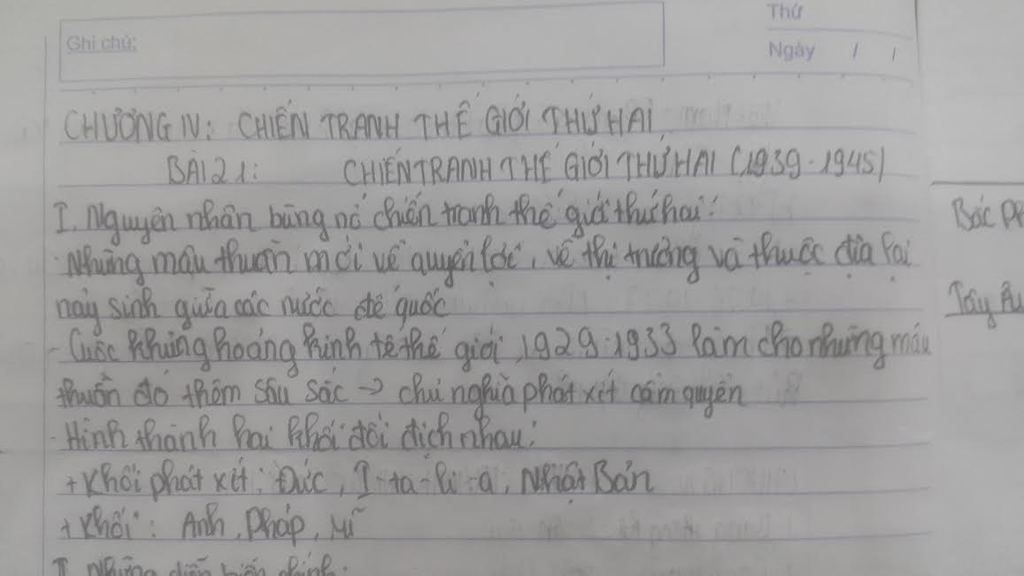 Ghi chú:
Thứ
Ngày / /
CHƯƠNG IV: CHIẾN TRANH THẾ GIỚI THỨ HAI
BÀI 21: CHIẾN TRANH THẾ GIỚI THỨ HAI (1939-1945)
I. Nguyên nhân bùng nổ chiến tranh thế giới thứ hai:
- Những mâu thuẫn mới về quyền lợi, về thị trường và thuộc địa lại
nảy sinh giữa các nước đế quốc
- Cuộc khủng hoảng kinh tế thế giới 1929-1933 làm cho những mâu
thuẫn đó thêm sâu sắc → chủ nghĩa phát xít cầm quyền
- Hình thành hai khối đối địch nhau:
+ Khối phát xít: Đức, I-ta-li-a, Nhật Bản
+ Khối: Anh, Pháp, Mĩ
II. Những diễn biến chính:
Bắc
Tây Âu